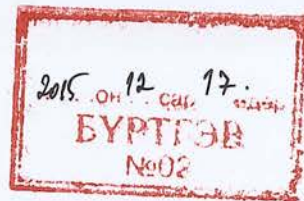 2015 он 12 сар 17.
БҮРТГЭВ
№02